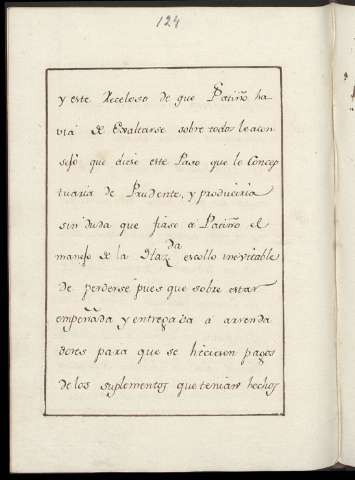 124
y este Receloso de que Patiño ha
via de Exaltarse sobre todos le acon
sejó que diese este Paso que le Concep
tuaria de Prudente, y produciria
sin duda que fiase á Patiño el
manejo de la Haz.da escollo inevitable
de perderse pues que sobre estar
empeñada y entregada á arrenda
dores para que se hiciesen pagos
de los suplementos que tenian hechos